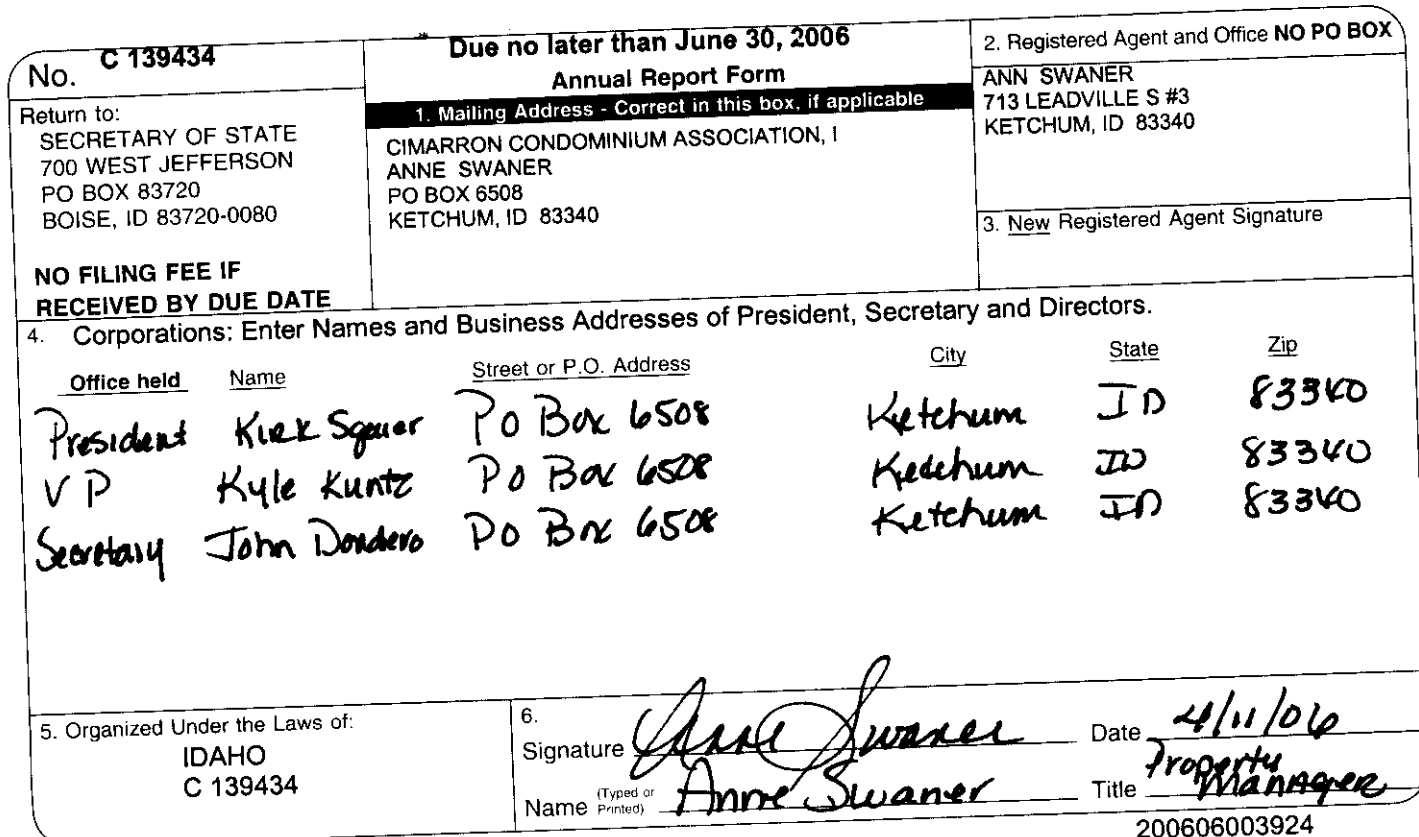 No. C 139434
Return to:
SECRETARY OF STATE
700 WEST JEFFERSON
PO BOX 83720
BOISE, ID 83720-0080
NO FILING FEE IF
RECEIVED BY DUE DATE
Due no later than June 30, 2006
Annual Report Form
1. Mailing Address - Correct in this box, if applicable
CIMARRON CONDOMINIUM ASSOCIATION, I
ANNE SWANER
PO BOX 6508
KETCHUM, ID 83340
2. Registered Agent and Office NO PO BOX
ANN SWANER
713 LEADVILLE S #3
KETCHUM, ID 83340
3. New Registered Agent Signature
4. Corporations: Enter Names and Business Addresses of President, Secretary and Directors.
Office held Name Street or P.O. Address City State Zip
President Kirk PO Box 6508 Ketchum ID 83340
VP Kyle Kuntz PO Box 6508 Ketchum ID 83340
Secretary John Dondero PO Box 6508 Ketchum ID 83340
5. Organized Under the Laws of:
IDAHO
C 139434
6.
Signature Anne Swaner Date 4/11/06
Name (Typed or Printed) Anne Swaner Title Property Manager
200606003924